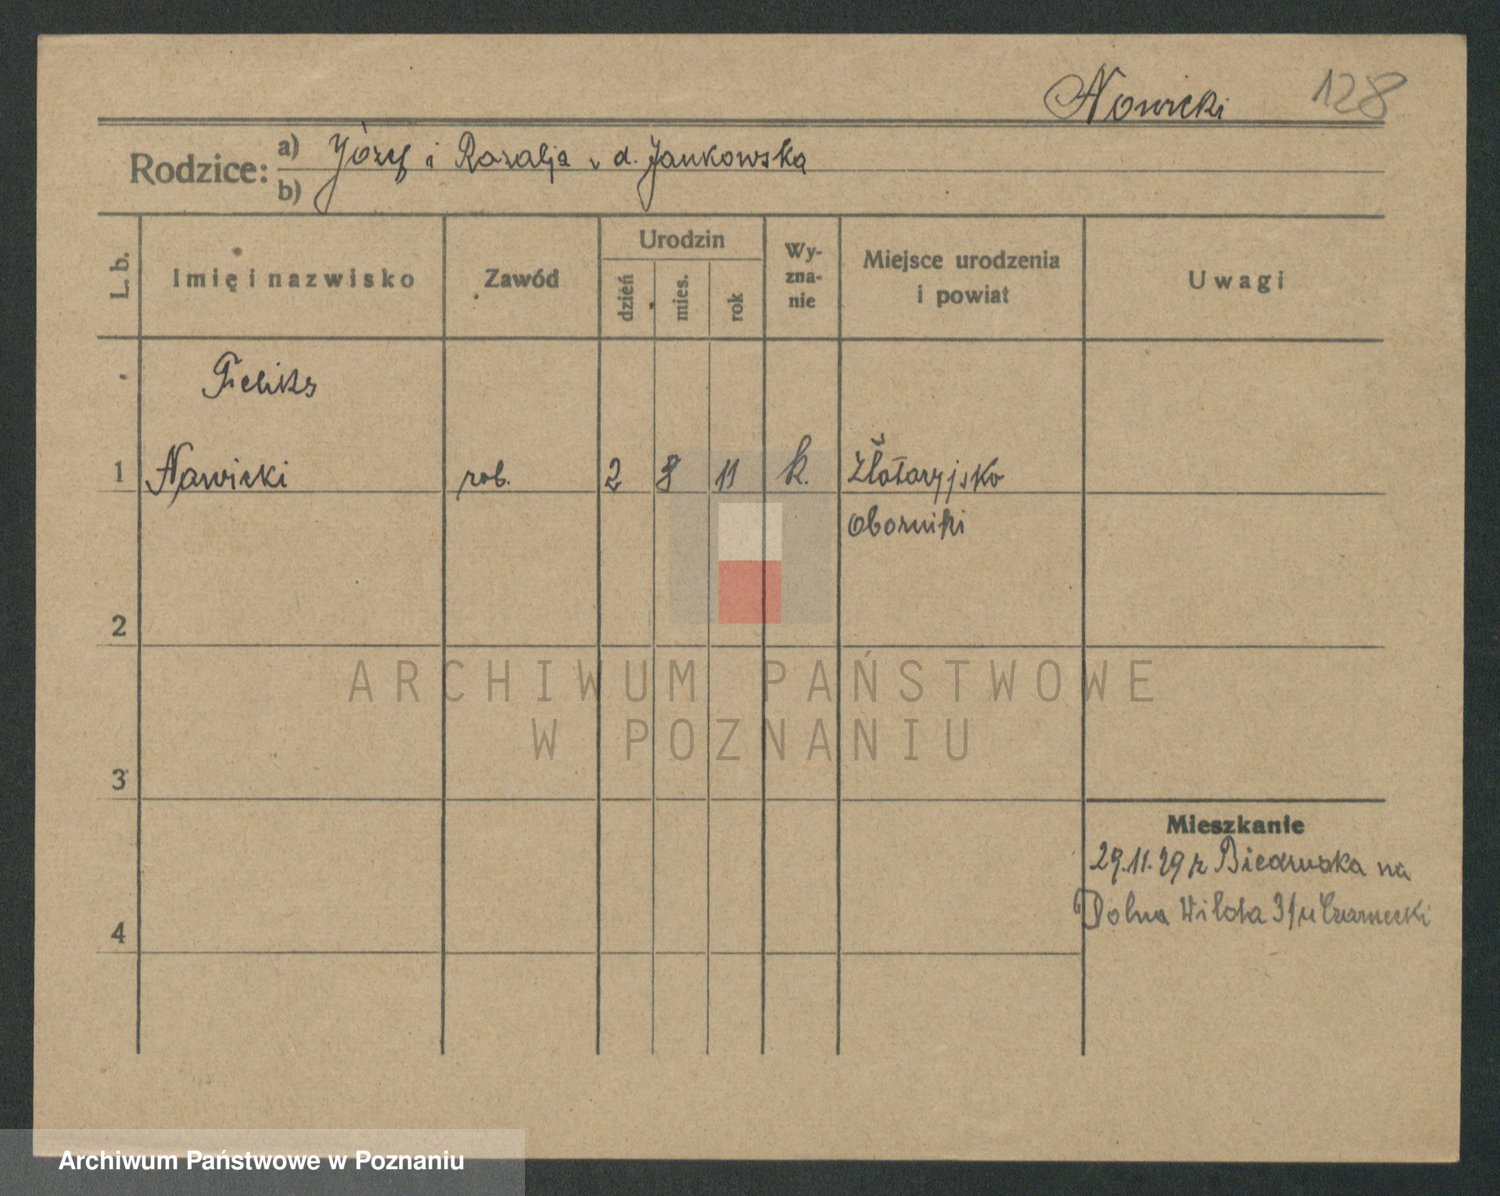 Nowicki 128
Rodzice: a) Józef i Rozalja z d. Jankowska
b)
L. b.
Imię i nazwisko
Zawód
Urodzin
dzień
mies.
rok
Wy-
zna-
nie
Miejsce urodzenia
i powiat
Uwagi
Feliks
1 Nowicki rob. 2 8 11 k.
Oborniki
2
ARCHIWUM PAŃSTWOWE
W POZNANIU
3
Mieszkanie
29.11.29 z Biedruska na
Dolna Wilda 31 u Czarnecki
4
Archiwum Państwowe w Poznaniu